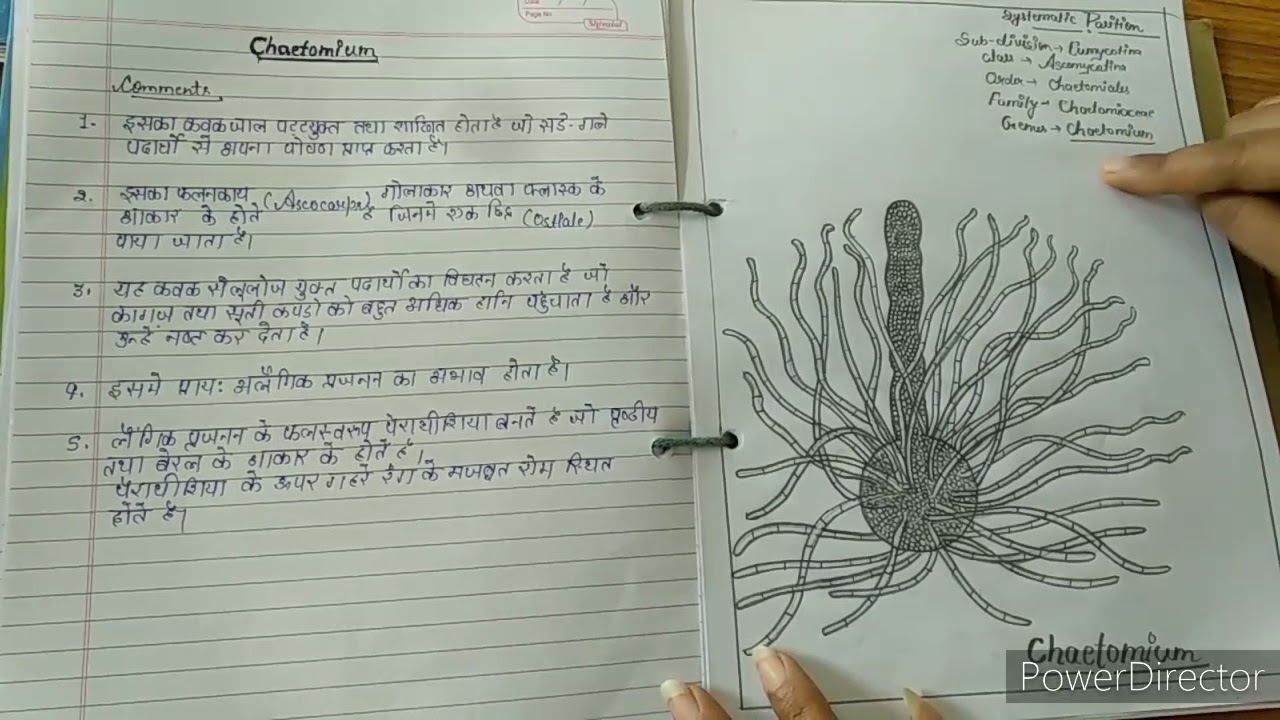 Date / /
Page No
Chaetomium
Comments
1- इसका कवकजाल पट्टयुक्त तथा शाखित होता है जो सडे-गले
पदार्थो से अपना पोषण प्राप्त करता है।
2. इसका फलनकाय (Ascocarp) गोलाकार अथवा फ्लास्क के
आकार के होते है जिनमे एक छिद्र (Ostiole)
पाया जाता है।
3. यह कवक सेलूलोज युक्त पदार्थो का विघटन करता है जो
कागज तथा सूती कपडो को बहुत अधिक हानि पहुंचाता है और
उन्हे नष्ट कर देता है।
4. इसमे प्रायः अलैंगिक प्रजनन का अभाव होता है।
5. लैंगिक प्रजनन के फलस्वरूप पेराथीशिया बनते है जो
तथा बेरल के आकार के होते है।
पेराथीशिया के ऊपर गहरे रंग के मजबूत रोम स्थित
होते है।
Systematic Position
Sub-division → Eumycotina
Class → Ascomycotina
Order → Chaetomiales
Family → Chaetomiaceae
Genus → Chaetomium
Chaetomium
PowerDirector